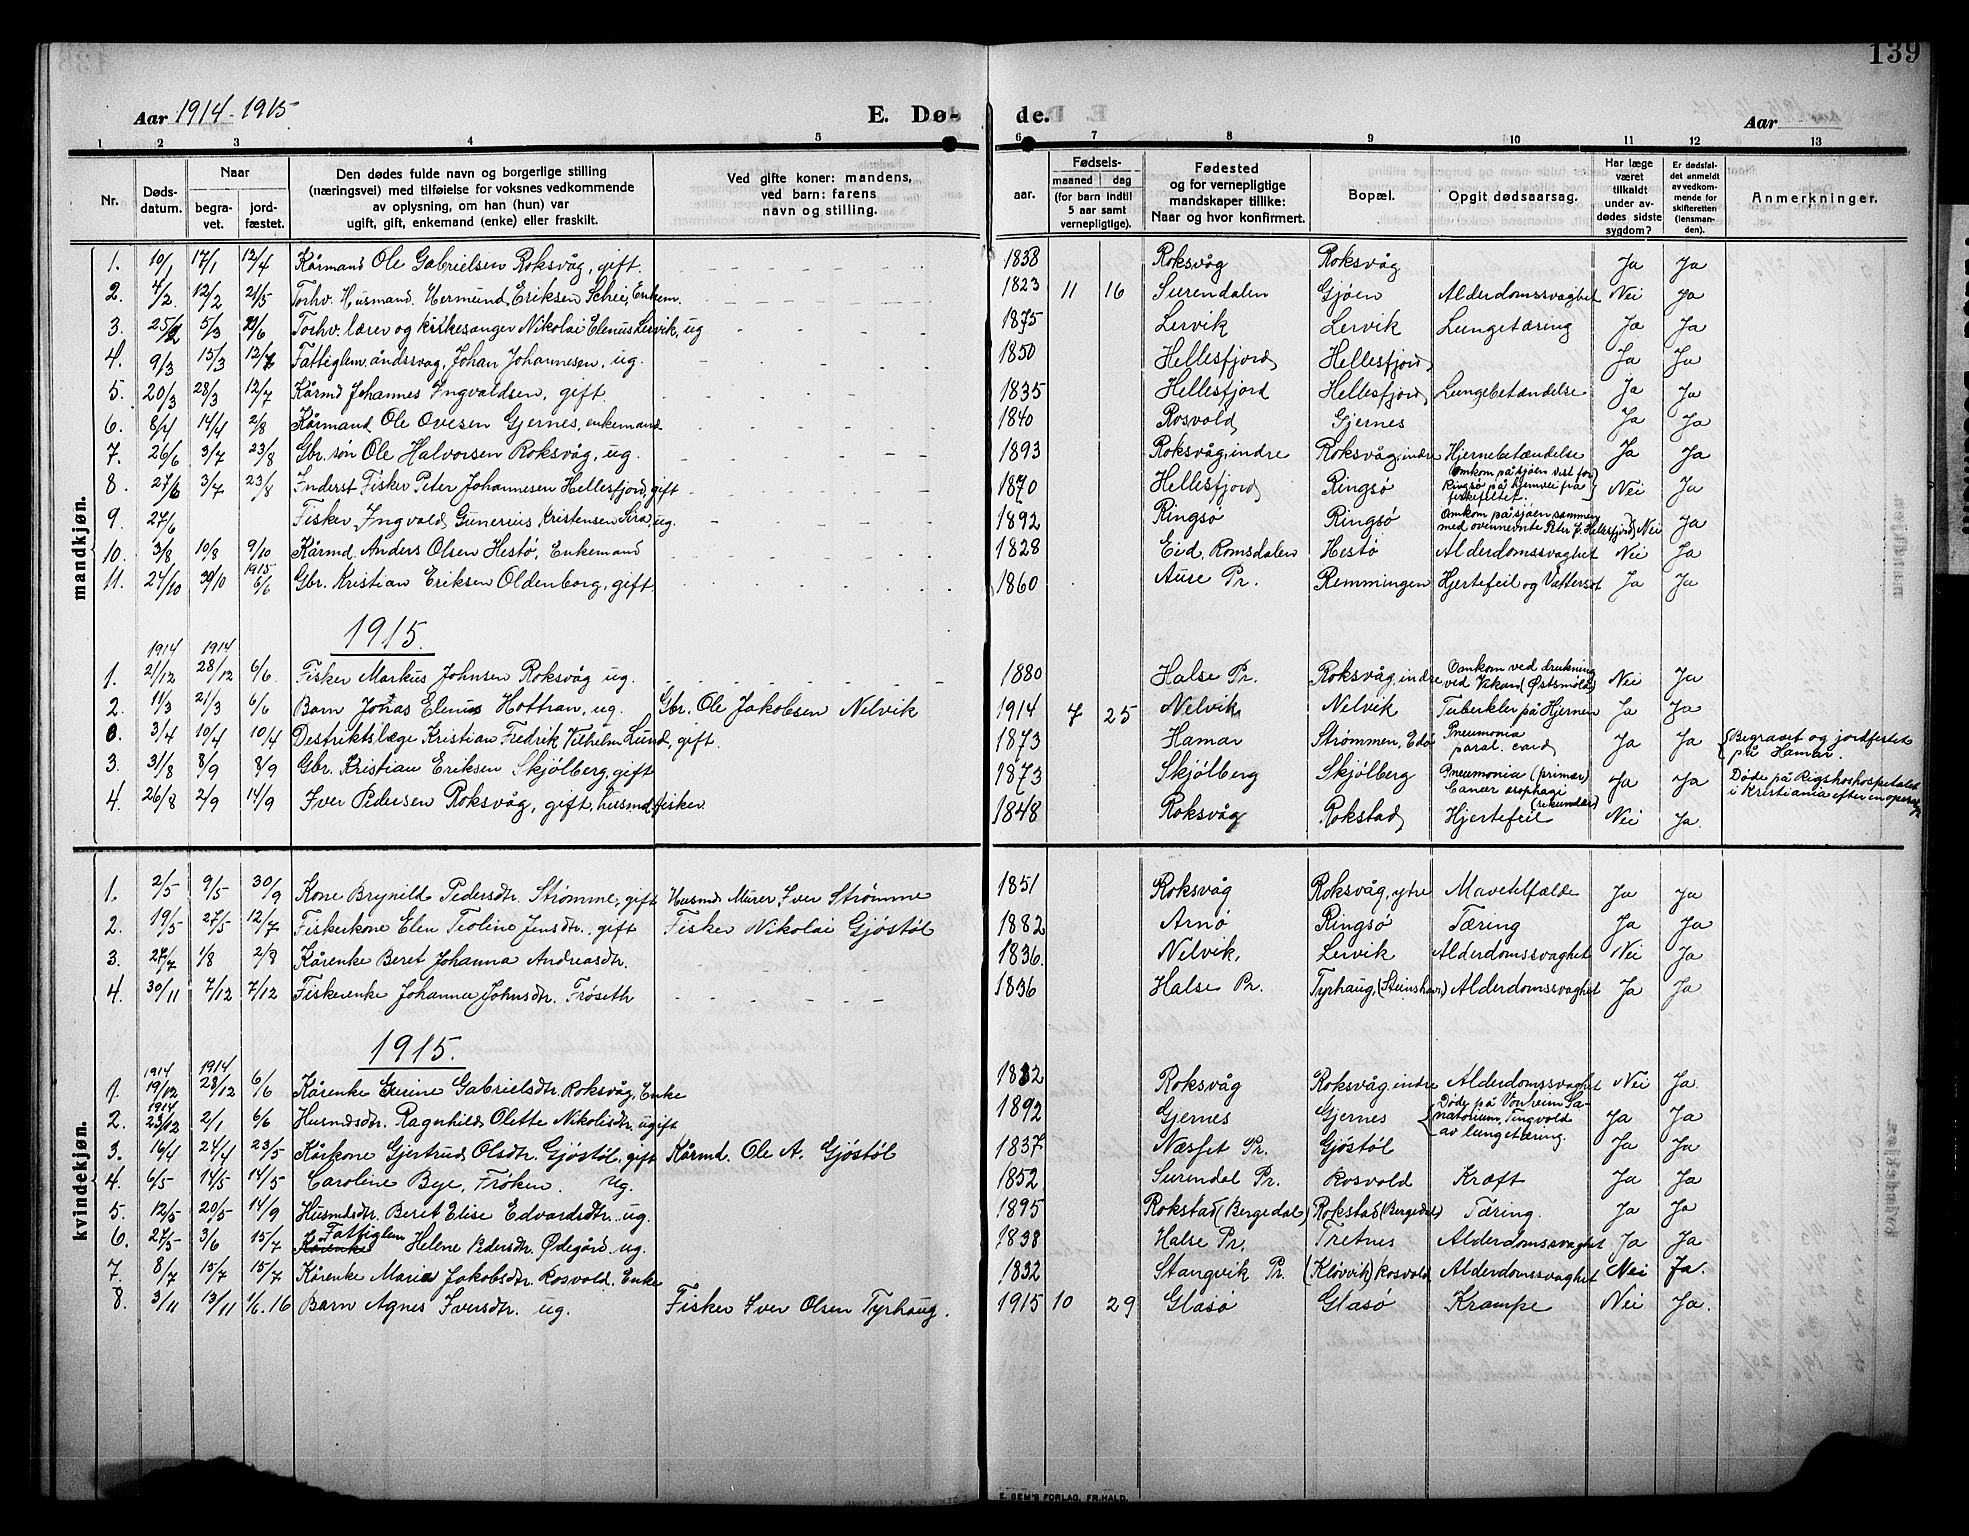 139
Aar 1914-1915 E. Dø- de. Aar
1 2 3 4 5 6 7 8 9 10 11 12 13
Nr. Døds-datum. Naar begra-vet. jord-fæstet. Den dødes fulde navn og borgerlige stilling (næringsvei) med tilføielse for voksnes vedkommende av oplysning, om han (hun) var ugift, gift, enkemand (enke) eller fraskilt. Ved gifte koner: mandens, ved barn: farens navn og stilling. Fødsels- aar. maaned dag (for barn indtil 5 aar samt vernepligtige). Fødested og for vernepligtige mandskaper tillike: Naar og hvor konfirmert. Bopæl. Opgit dødsaarsag. Har læge været tilkaldt under av-dødes sidste sygdom? Er dødsfal-det anmeldt av vedkom-mende for skifteretten (lensman-den). Anmerkninger.
mandkjøn.
1. 10/1 17/1 12/4 Kårmand Ole Gabrielsen Roksvåg, gift. 1838 Roksvåg Roksvåg Ja Ja
2. 4/2 12/2 21/5 Forhv. Husmand Hermund Eriksen Schei, Enkem. 1823 11 16 Surendalen Gjøen Alderdomssvaghet Nei Ja
3. 25/2 5/3 /6 Forhv. lærer og kirkesanger Nikolai Elenus Lervik, ug 1875 Lervik Lervik Lungetæring Ja Ja
4. 9/3 15/3 12/7 Fattiglem, åndssvag, Johan Johannesen, ug. 1850 Hellesfjord Hellesfjord Ja Ja
5. 20/3 28/3 12/7 Kårmd Johannes Ingvaldsen, gift 1835 Hellesfjord Hellesfjord Lungebetændelse Ja Ja
6. 8/4 14/4 2/8 Kårmand Ole Ovesen Gjernes, enkemand 1840 Rosvold Gjernes Ja Ja
7. 26/6 3/7 23/8 Gbr. søn Ole Halvorsen Roksvåg, ug. 1893 Roksvåg, indre Roksvåg, indre Hjernebetændelse Ja Ja
8. 27/6 3/7 23/8 Inderst Fisker Peter Johannesen Hellesfjord, gift 1870 Hellesfjord Ringsø Omkom på sjøen vest for Ringsø på hjemvei fra fiskefeltet. Nei Ja
9. 27/6 Fisker Ingvald Gunerius Kristensen Sira, ug. 1892 Ringsø Ringsø Omkom på sjøen sammen med ovennevnte Peter J. Hellesfjord Nei Ja
10. 3/8 10/8 9/10 Kårmd. Anders Olsen Hestø, Enkemand 1828 Eid, Romsdalen Hestø Alderdomssvaghet Nei Ja
11. 24/10 30/10 1915 6/6 Gbr. Kristian Eriksen Oldenborg, gift 1860 Aure Pr. Remmingen Hjertefeil og Vattersot Ja Ja
1915.
1. 1914 21/12 1914 28/12 6/6 Fisker Markus Johnsen Roksvåg ug. 1880 Halse Pr. Roksvåg, indre Omkom ved drukning ved Vikan (Østsmøla) Nei Ja
2. 11/3 21/3 6/6 Barn Jonas Elenus Hottran, ug. Gbr. Ole Jakobsen Nelvik 1914 7 25 Nelvik Nelvik Tuberkler på Hjernen Ja Ja
0. 3/4 10/4 10/4 Destriktslæge Kristian Fredrik Vilhelm Lund, gift. 1873 Hamar Strømmen, Edø Pneumonia paral. cord Ja Ja Begravet og jordfestet på Hamar.
3. 31/8 8/9 8/9 Gbr. Kristian Eriksen Skjølberg, gift 1873 Skjølberg Skjølberg Pneumonia (primær) Cancer øsophagi (sekundær) Ja Ja Døde på Rigshoshospetalet i Kristiania efter en
4. 26/8 2/9 14/9 Iver Pedersen Roksvåg, gift, husmd, fisker 1848 Roksvåg Rokstad Hjertefeil Nei Ja.
kvindekjøn.
1. 2/5 9/5 30/9 Kone Brynild Pedersdtr. Strømme, gift Husmd Murer Iver Strømme 1851 Roksvåg Roksvåg, ytre Mavetilfælde Ja Ja
2. 19/5 27/5 12/7 Fiskerkone Elen Teoline Jensdtr., gift Fisker Nikolai Gjøstøl 1882 Arnø Ringsø Tæring Ja Ja
3. 27/7 1/8 2/8 Kårenke Beret Johanna Andreasdtr. 1836. Nelvik, Lervik Alderdomssvaghet Nei Ja
4. 30/11 7/12 7/12 Fiskerenke Johanna Johnsdtr. Frøseth 1836 Halse Pr. Tyrhaug, (Steinshavn) Alderdomssvaghet Ja Ja
1915.
1. 1914 19/12 1914 28/12 6/6 Kårenke Gabrielsdtr. Roksvåg, Enke 1832 Roksvåg Roksvåg, indre Alderdomssvaghet Nei Ja
2. 1914 23/12 2/1 6/6 Husmdsdtr. Ragnhild Olette Nikolisdtr. ugift 1892 Gjernes Gjernes Døde på Vonheim Sa-natorium, Tingvold av lungetæring. Ja Ja
3. 16/4 24/4 23/5 Kårkone Gjertrud Olsdtr. Gjøstøl, gift Kårmd. Ole A. Gjøstøl 1837 Næsset Pr. Gjøstøl Ja Ja
4. 6/5 14/5 14/5 Caroline Bye, Frøken. Ug. 1852 Surendal Pr. Rosvold Kræft Ja Ja
5. 12/5 20/5 14/9 Husmdsdtr. Beret Elise Edvardsdtr. ug. 1895 Rokstad (Bergedal) Rokstad (Bergedal) Tæring. Ja Ja
6. 27/5 3/6 15/7 Fattiglem Kårenke Helene Pedersdtr. Ødegård ug. 1838 Halse Pr. Tretnes Alderdomssvaghet Ja Ja
7. 8/7 15/7 15/7 Kårenke Maria Jakobsdtr. Rosvold. Enke 1832 Stangvik Pr. (Kløvvik) Rosvold Alderdomssvaghet Nei Ja.
8. 3/11 13/11 1/6. 16 Barn Agnes Iversdtr. ug. Fisker Iver Olsen Tyrhaug. 1915 10 29 Glasø Glasø Krampe Nei Ja.
E. SEM'S FORLAG, FR.HALD.